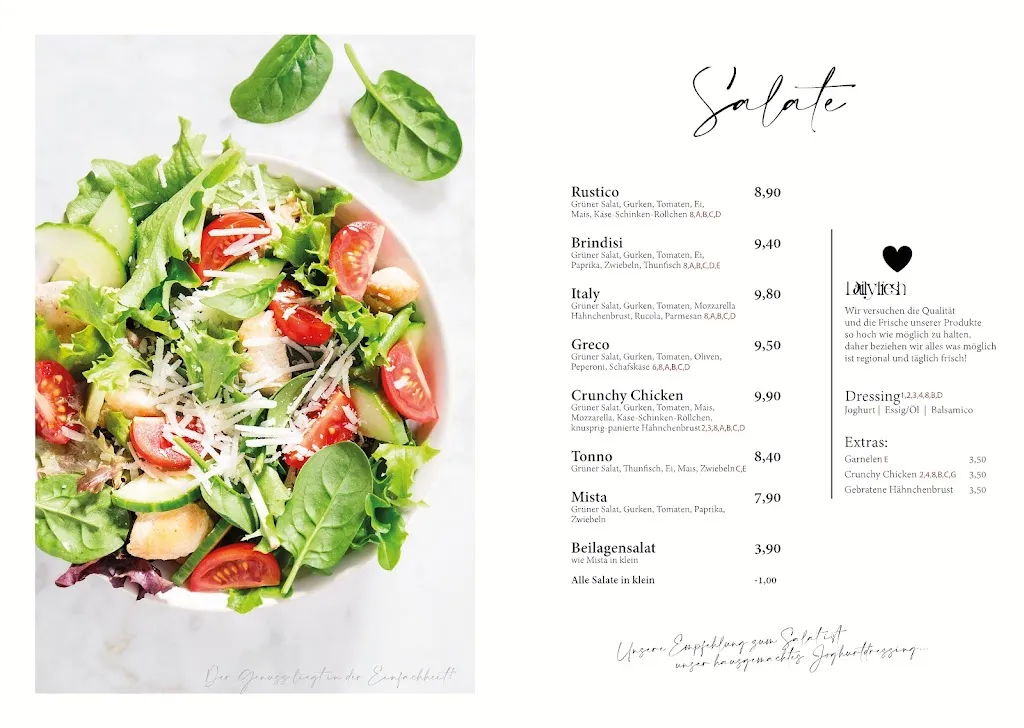 Salate
Rustico 8,90
Grüner Salat, Gurken, Tomaten, Ei,
Mais, Käse-Schinken-Röllchen 8,A,B,C,D
Brindisi 9,40
Grüner Salat, Gurken, Tomaten, Ei,
Paprika, Zwiebeln, Thunfisch 8,A,B,C,D,E
Italy 9,80
Grüner Salat, Gurken, Tomaten, Mozzarella
Hähnchenbrust, Rucola, Parmesan 8,A,B,C,D
Greco 9,50
Grüner Salat, Gurken, Tomaten, Oliven,
Peperoni, Schafskäse 6,8,A,B,C,D
Crunchy Chicken 9,90
Grüner Salat, Gurken, Tomaten, Mais,
Mozzarella, Käse-Schinken-Röllchen,
knusprig-panierte Hähnchenbrust 2,3,8,A,B,C,D
Tonno 8,40
Grüner Salat, Thunfisch, Ei, Mais, Zwiebeln C,E
Mista 7,90
Grüner Salat, Gurken, Tomaten, Paprika,
Zwiebeln
Beilagensalat 3,90
wie Mista in klein
Alle Salate in klein -1,00
Daily fresh
Wir versuchen die Qualität
und die Frische unserer Produkte
so hoch wie möglich zu halten,
daher beziehen wir alles was möglich
ist regional und täglich frisch!
Dressing 1,2,3,4,8,B,D
Joghurt | Essig/Öl | Balsamico
Extras:
Garnelen E 3,50
Crunchy Chicken 2,4,8,B,C,G 3,50
Gebratene Hähnchenbrust 3,50
Unsere Empfehlung zum Salat ist
unser hausgemachtes Joghurtdressing...
Der Genuss liegt in der Einfachheit!